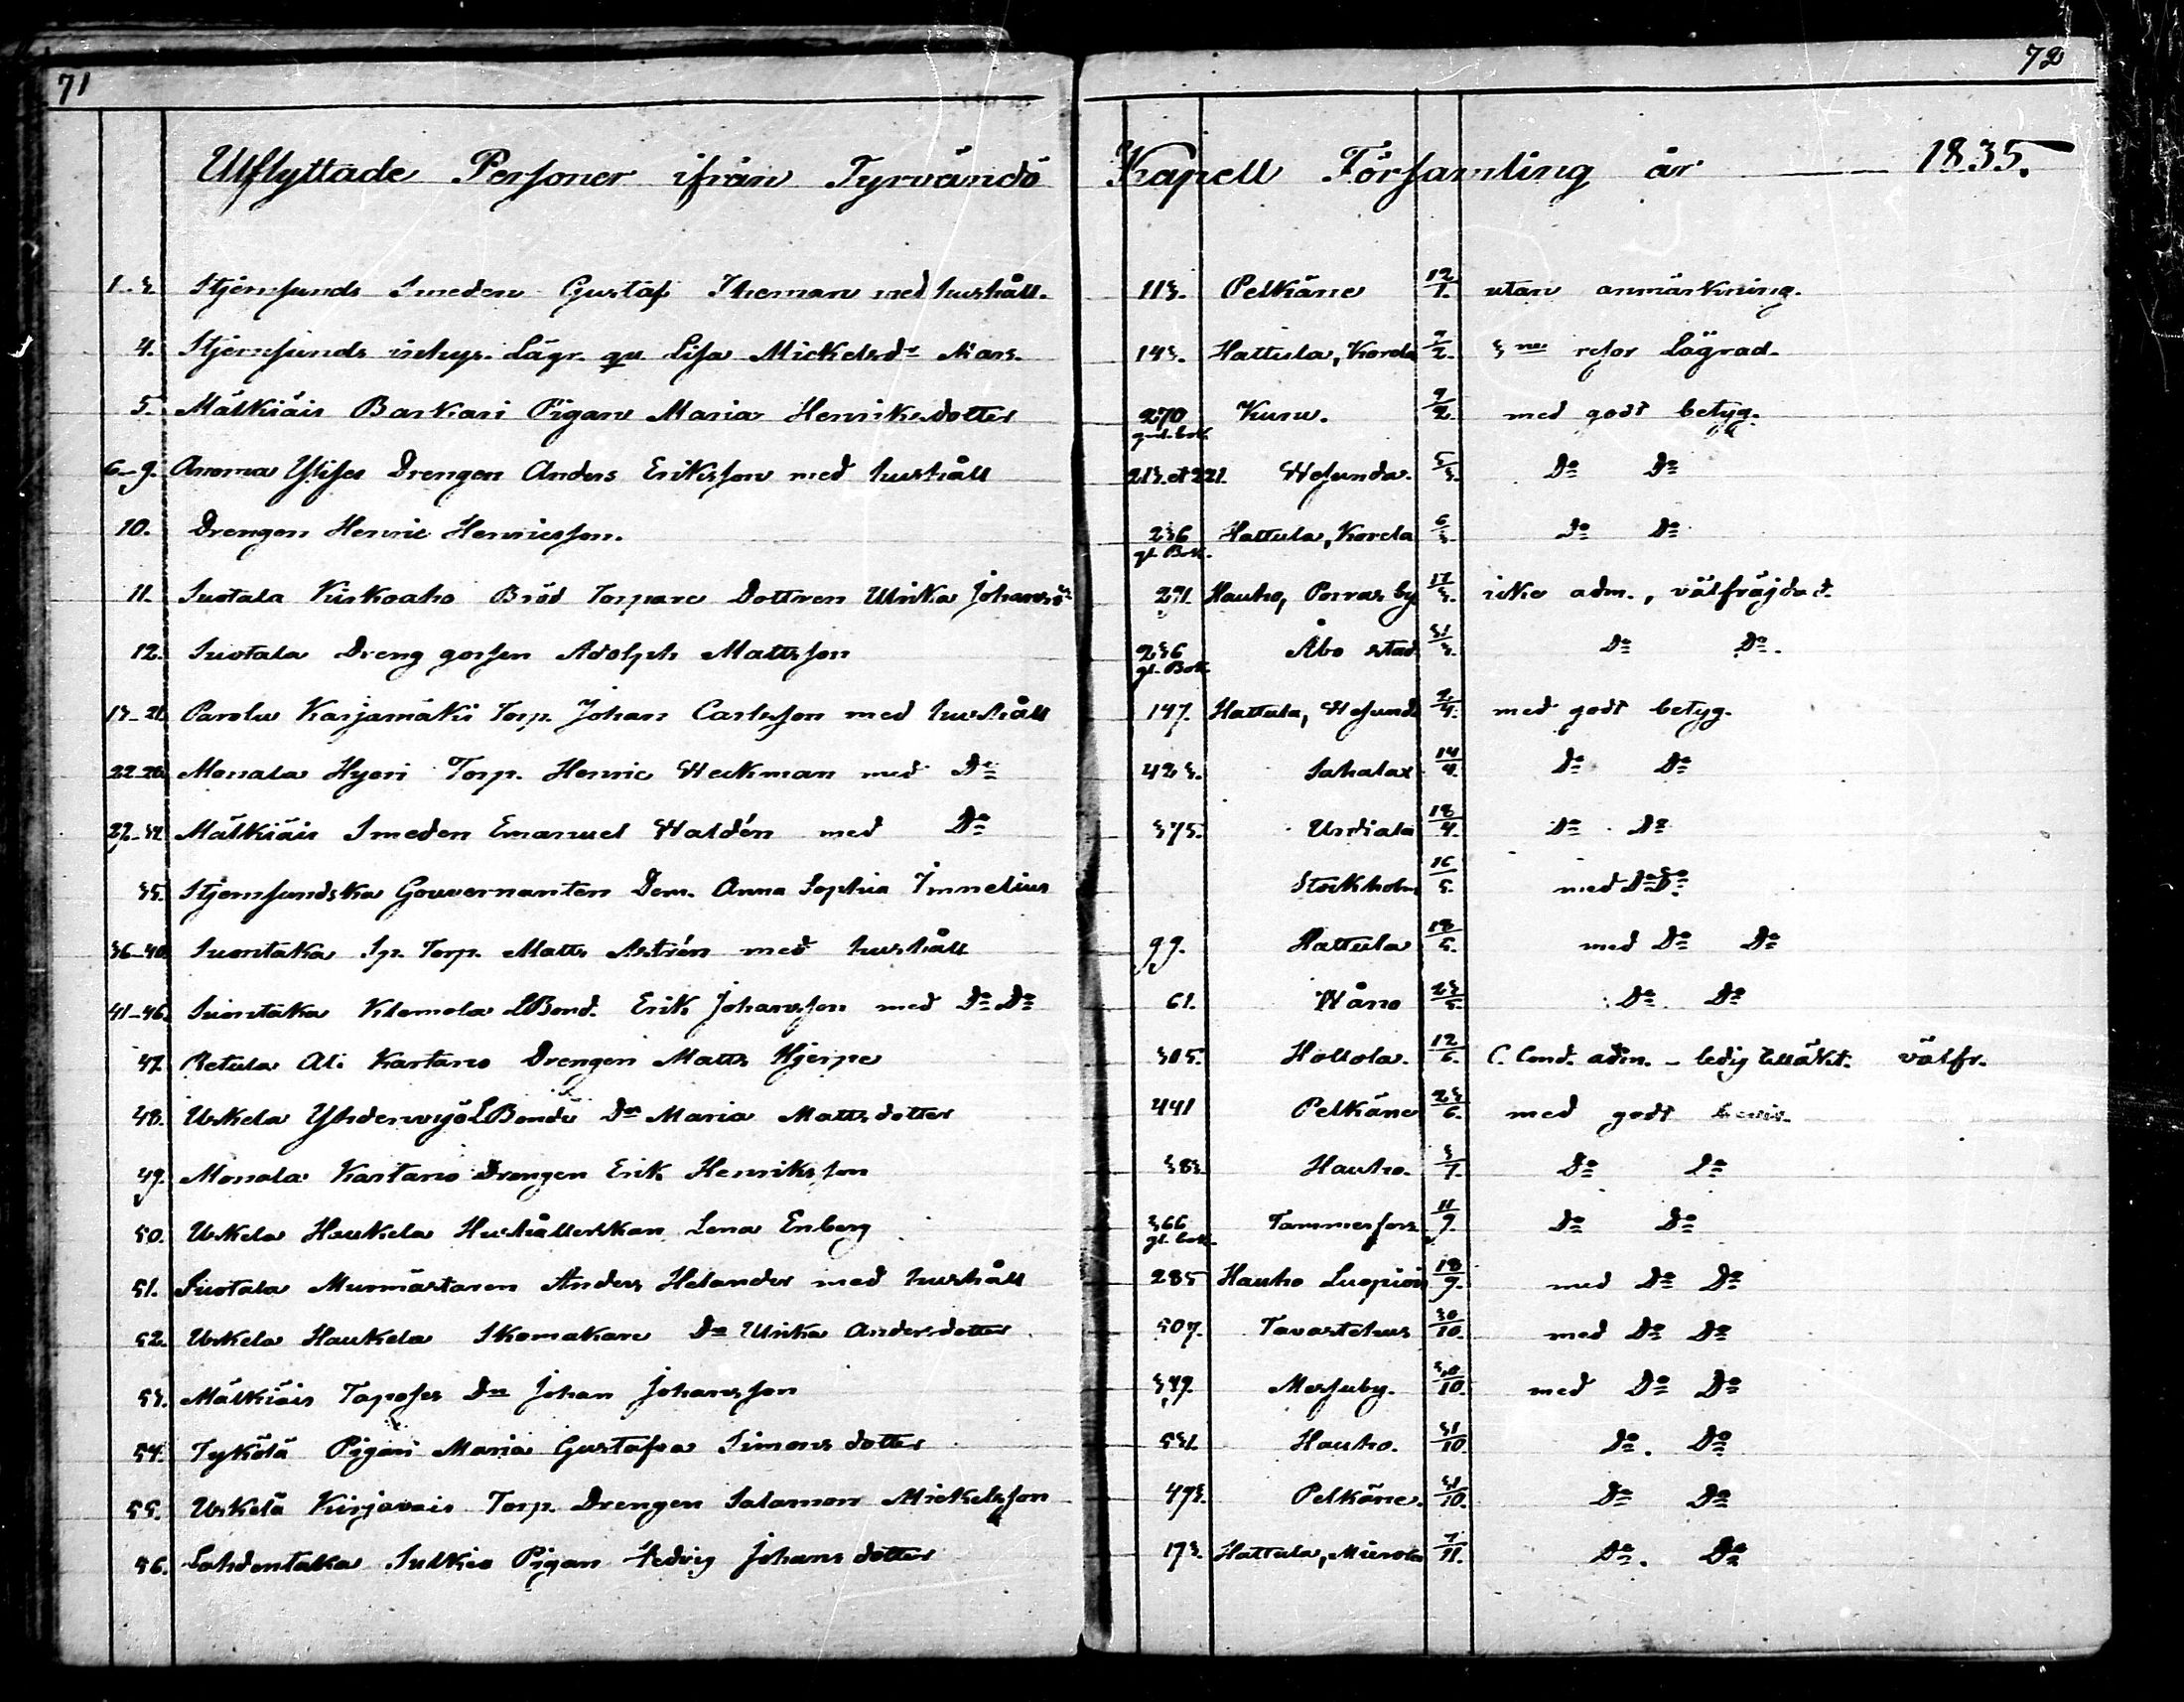 71 72
Utflyttade Personer ifrån Tyrvändö Kapell Församling år 1835.
1-3. Stjernsunds Smeden Gustaf Theman med hushåll. 113. Pelkäne 12/1. utan anmärkning.
4. Stjernsunds inhys. Lägr. qv. Lisa Mickelsdr 143. Hattula, Korda 9/2. 3ne resor Lägrad.
5. Mälkiäis Barkari Pigan Maria Henriksdotter 270 Kuru. 9/2. med godt betyg.
6-9. Anoma Ylisen Drengen Anders Eriksson med hushåll 213. et 221. Wesunda. 5/3. Do Do
10. Drengen Henric Henricsson. 236 gl. Bok. Hattula, Korda 6/3. Do Do
11. Suotala Kiskoaho Bröd Torpare Dottren Ulrika Johansdr 291. Hauho, Porras by 17/3. icke adm., välfräjdad.
12. Suotala Dreng gossen Adolph Mattsson 236 gl. Bok. Åbo stad 31/3. Do Do.
13-21. Parola Karjamäki Torp. Johan Carlsson med hushåll 147. Hattula, Wesunda 2/4. med godt betyg.
22-26. Monala Hyöri Torp. Henric Weckman med Do 423. Sahalax 14/4. Do Do
27-34. Mälkiäis Smeden Emanuel Waldén med Do 375. Urdiala 18/4. Do Do
35. Stjernsundska Gouvernanten Dem. Anna Sophia Imnelius Stockholm 16/5. med Do Do.
36-40. Suontaka Sp. Torp. Matts Astrén med hushåll 99. Hattula 18/5. med Do Do
41-46. Suontaka Klemola LBond. Erik Johansson med Do Do 61. Wåno 23/5. Do Do
47. Retula Ali Kartano Drengen Matts Hjerpe 305. Hollola. 12/6. C. Cond. adm. - ledig till äkt. välfr.
48. Uskela LBonde Dr Maria Mattsdotter 441 Pelkäne 23/6. med godt bevis.
49. Monala Kartano Drengen Erik Henriksson 383. Hauho. 3/7. Do Do
50. Uskela Haukela Hushållerskan Lena Enberg 366 gl. bok. Tammerfors 11/9. Do Do
51. Suotala Murmästaren Anders Helander med hushåll 285 Hauho Luopiois 18/9. med Do Do
52. Uskela Haukela Skomakare Dr Ulrika Andersdotter 507. Tavastehus 30/10. med Do Do
53. Mälkiäis Taposes Dn Johan Johansson 349. Messuby. 30/10. med Do Do
54. Tykölä Pigan Maria Gustafva Simonsdotter 531. Hauho. 31/10. Do. Do
55. Uskela Kirjavais Torp. Drengen Salamon Mickelsson 493. Pelkäne. 31/10. Do Do
56. Lahdentaka Sulkio Pigan Hedvig Johansdotter 173. Hattula, Mierola 7/11. Do. Do